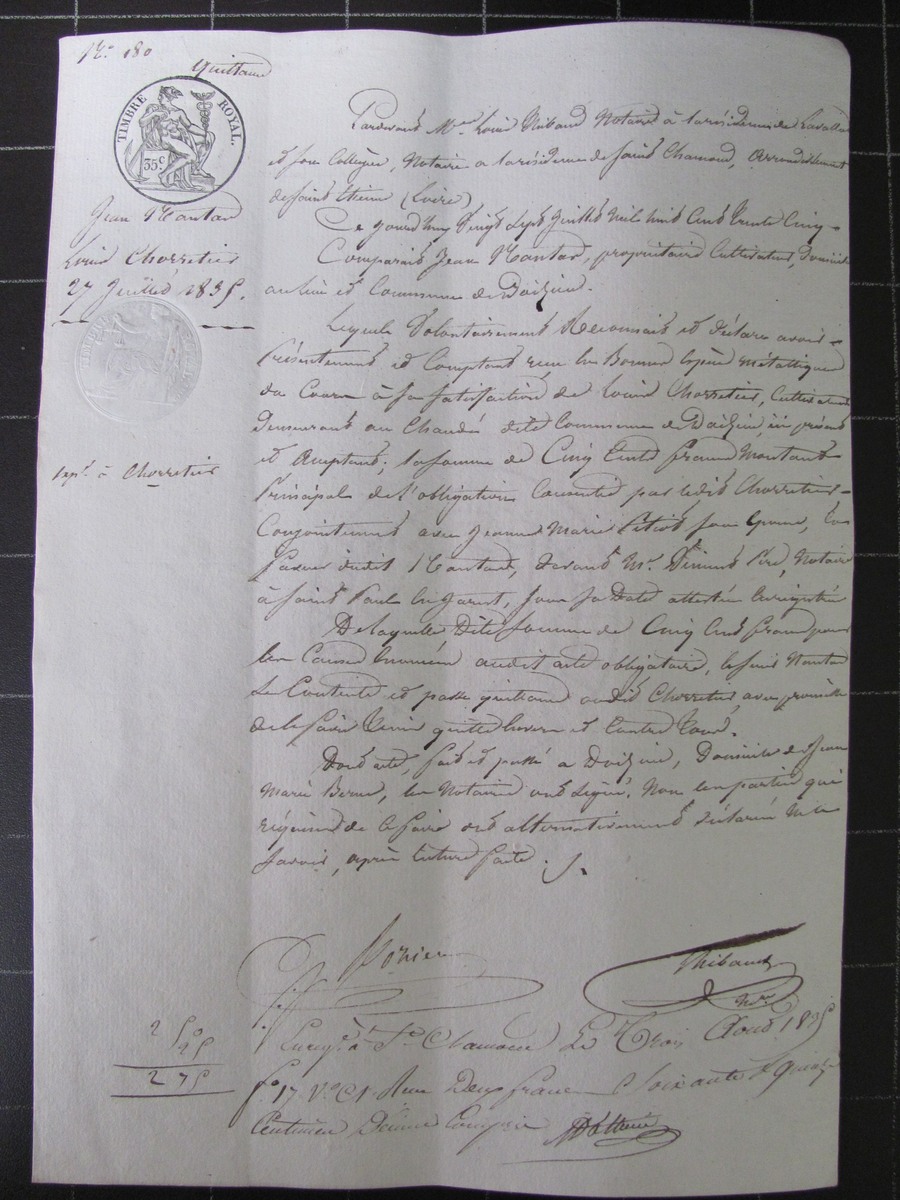 N.° 180
quittance
TIMBRE ROYAL.
35c
Jean Montan
Louis Chorretier
27 Juillet 1835.
exp.é à Chorretier
Pardevant M.e Louis Thibaud Notaire à la résidence de Lavalla
et son Collègue, Notaire a la résidence de Saint Chamond, Arrondissement
de Saint Etienne (Loire)
Ce jourd'huy Vingt Sept Juillet Mil huit Cent trente Cinq
Comparait Jean Montan, propriétaire Cultivateur, Domicilié
au lieu et Commune de Doizieu.
Lequel Volontairement Reconnait et déclare avoir
Présentement et Comptant reçu en Bonnes Espèces métalliques
du Cours à sa satisfaction de Louis Chorretier, Cultivateur
Demeurant au dite Commune de Doizieu ici présent
et Acceptant; la somme de Cinq Cents francs Montant
Principal de l'obligation Consentie par ledit Chorretier
Conjointement avec Jeanne Marie Petiot son Epouse, En
faveur dudit Montant, devant M.e Père, Notaire
à Saint Paul En Jarret, Sous Sa Date attestée Enregistrée
De laquelle Dite Somme de Cinq Cents francs pour
les Causes Enoncées audit acte obligatoire, le sieur Montan
Se Contente et passe quittance audit Chorretier, avec promesse
de le faire Tenir quitte Envers et Contre Tous.
Dont acte, fait et passé a Doizieu, Domicile de Jean
Marie Berne, les Notaires ont Signé. Non les parties qui
requises de le faire ont alternativement déclaré Ne le
Savoir, après lecture faite.
Thibaud
N.re
Enreg.é à S.t Chamond Le Trois Aout 1835
f.° 17 V.° C 1 Reçu Deux francs Soixante et Quinze
Centimes Décime Compris
2 50
25
2 75